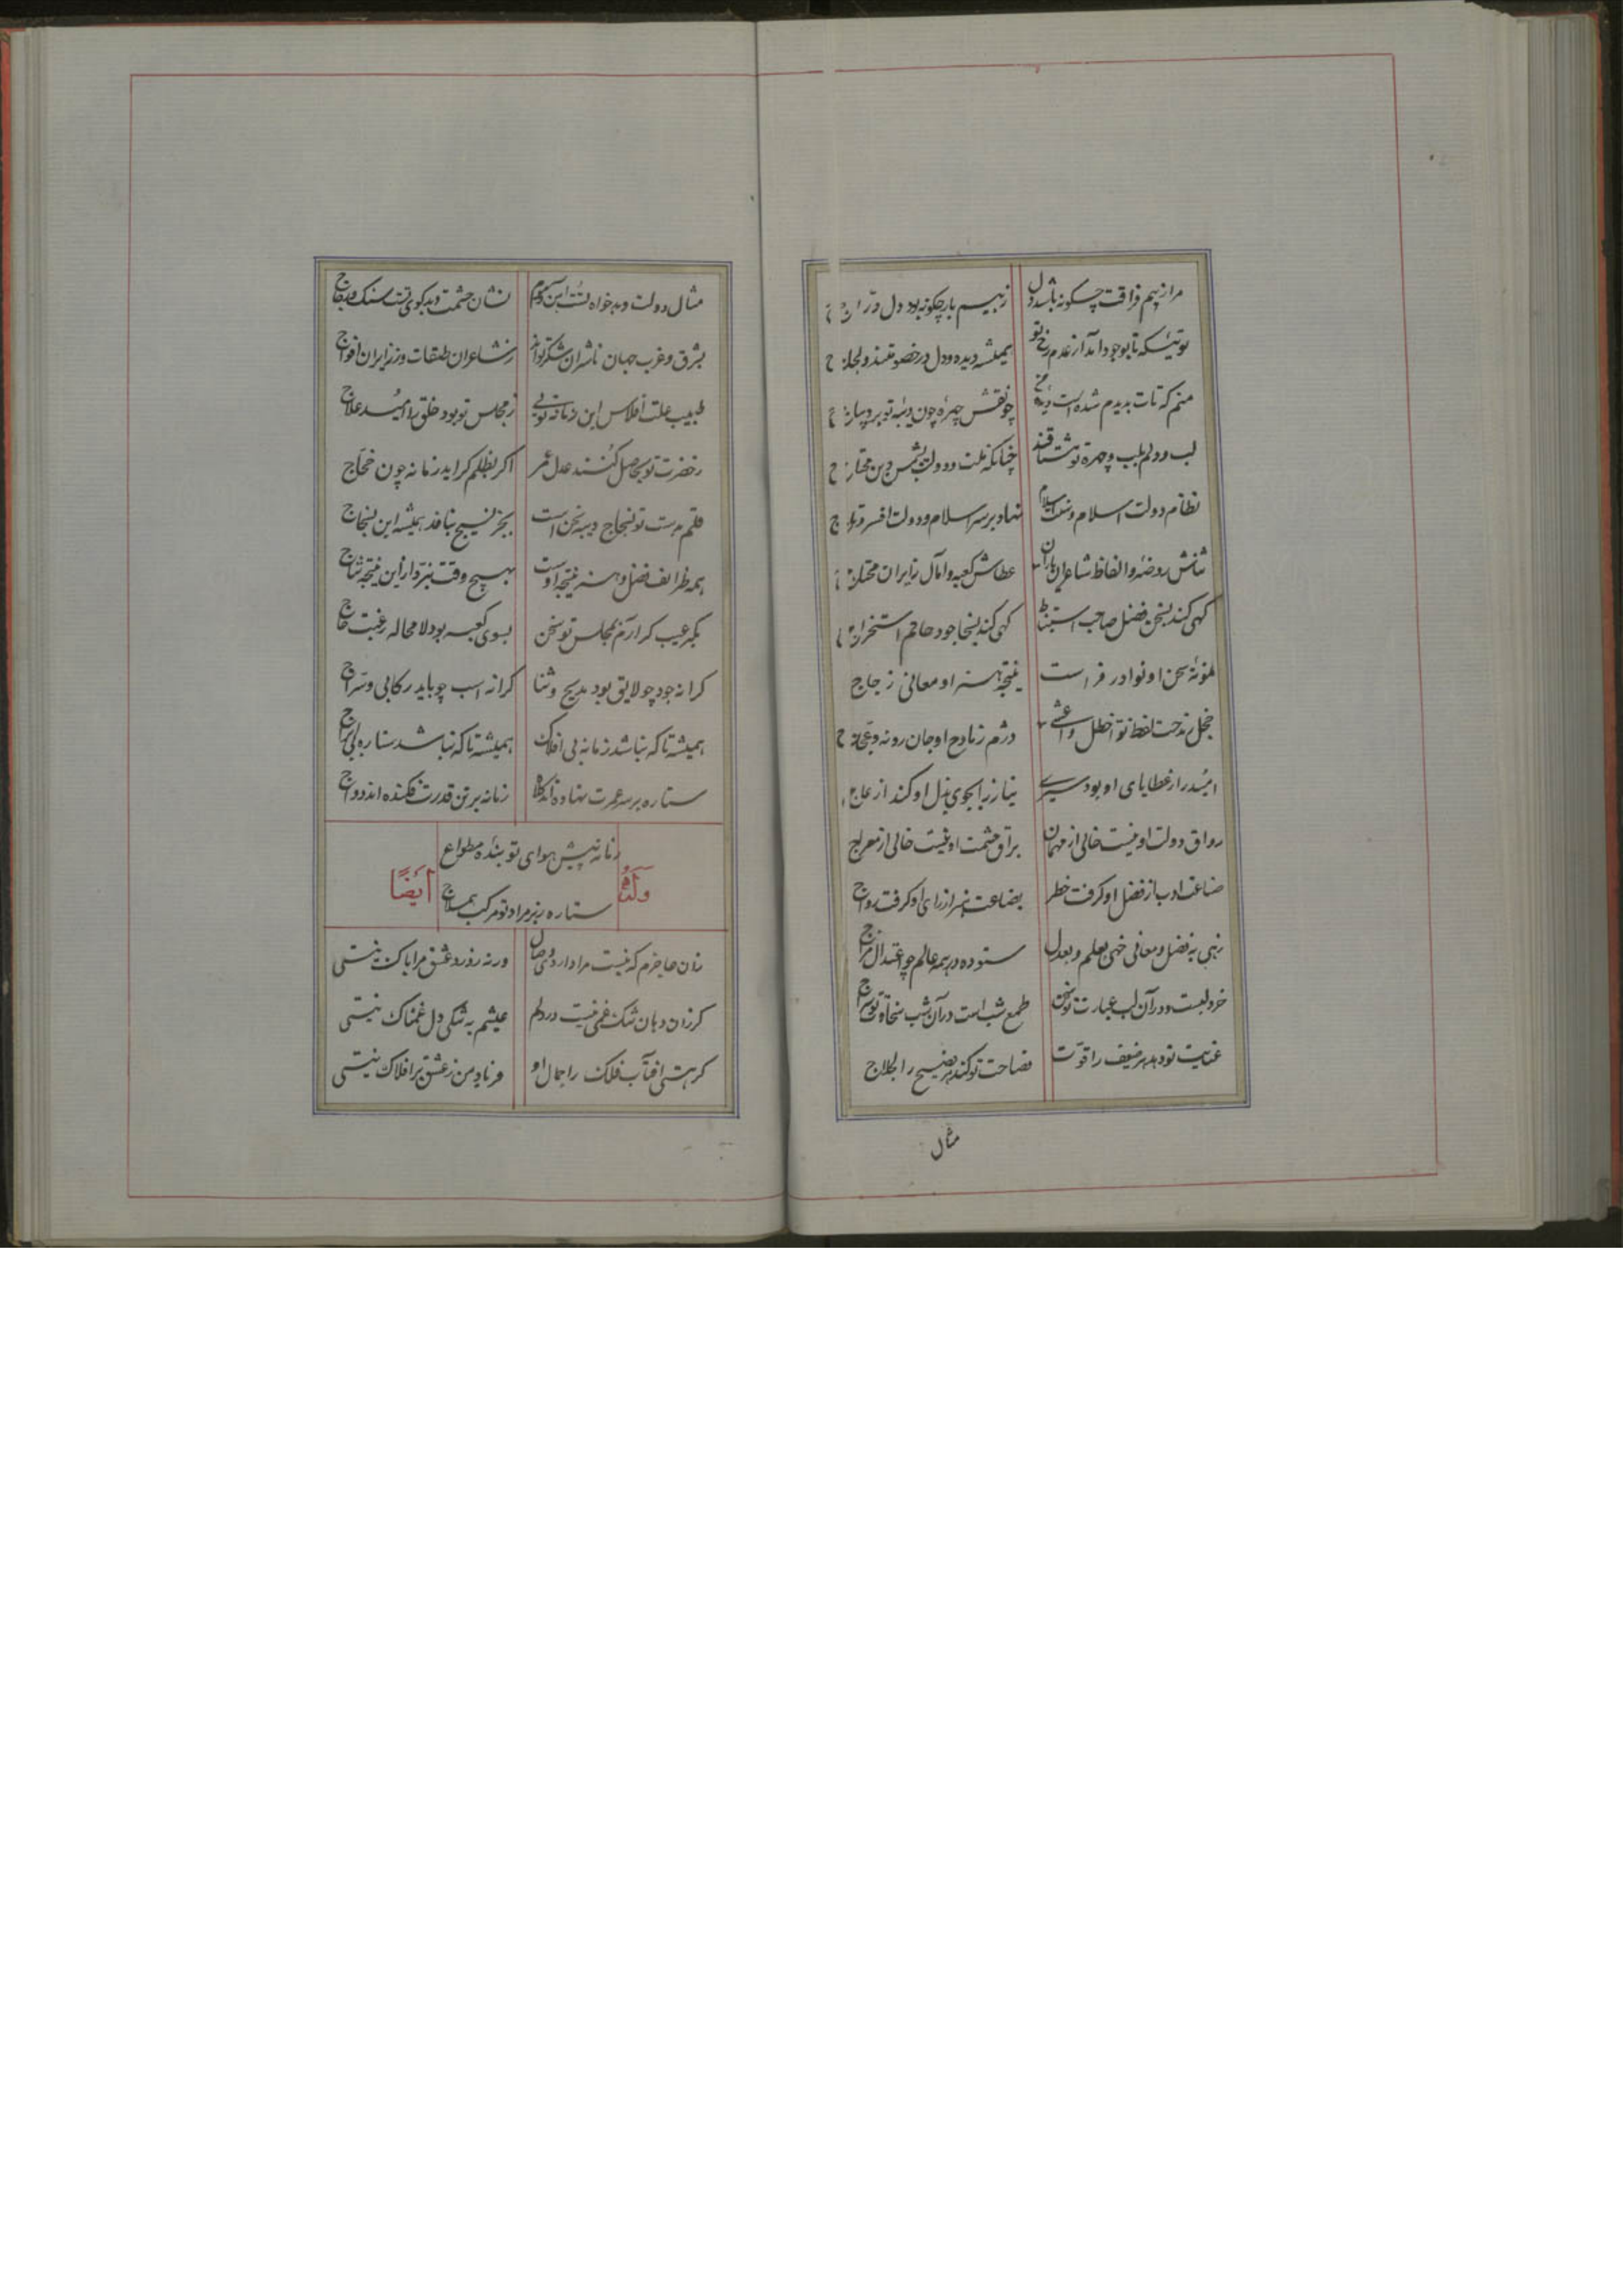 مرا ز بیم فراقت چگونه باشد دل
ز بیم باز چگونه بود دل
توئیکه تا بوجود آمد از عدم رخ تو
همیشه دیده و دل در خصومتند و لجاج
منم که تات بدیدم شده است
چو نقش چهره چون دیبه تو بر دیباج
لب و دلم بلب و چهره تو مشتاقند
چنانکه ملت و دولت بشمس دین محتاج
نظام دولت اسلام و
نهاد بر سر اسلام و دولت افسر و تاج
ثناش روضه و الفاظ شاعران
عطاش کعبه و آمال زایران
گهی کند بسخن فضل صاحب استنباط
گهی کند بسخا جود حاتم استخراج
نمونه سخن او نوادر فراست
نتیجه هنر او معانی زجاج
خجل ز مدحت لفظ تو اخطل و اعشی
درم ز مادح او جان
امید را ز عطایای او بود سیری
نیاز را بجوی بذل او کند ازعاج
رواق دولت او نیست خالی از مهمان
براق حشمت او نیست خالی از معراج
صناعت ادب از فضل او گرفت خطر
بضاعت هنر از رای او گرفت رواج
زهی به فضل و معانی خهی بعلم و بعدل
ستوده در همه عالم چو اعتدال مزاج
خرد لبست و در آن لب عبارت تو سخن
طمع شب است در آن شب سخاوت تو سراج
عنایت تو دهد هر ضعیف را قوت
فصاحت تو کند هر فصیح را لجلاج
مثال
مثال دولت و بدخواه تست
نشان حشمت و بدگوی تست سنک و زجاج
بشرق و غرب جهان ناشران شکر تواند
ز شاعران طبقات و ز زایران افواج
طبیب علت افلاس این زمانه توئی
ز مجلس تو بود خلق را امید علاج
ز حضرت تو بحاصل کنند عدل عمر
اگر بظلم گراید زمانه چون حجاج
قلم بدست تو نساج دیبه سخن است
بجز نسیج نبافد همیشه این نساج
همه ظرایف فضل و هنر نتیجه اوست
بهیچ وقت نبرد از این نتیجه نتاج
مگیر عیب گر آرم بمجلس تو سخن
بسوی کعبه بود لامحاله رغبت حاج
کرانه جود چو لایق بود مدیح و ثنا
کرانه اسب چو باید رکابی و سراج
همیشه تا که نباشد زمانه بی افلاک
همیشه تا که نباشد ستاره بی ابراج
ستاره بر سر عمرت نهاده اند کلاه
زمانه بر تن قدرت فکنده اند دواج
زمانه پیش هوای تو بنده مطواع
وله ایضا
ستاره زیر مراد تو مرکب هملاج
زان ها خرم که نیست مرا دارد وصال
ورنه ز درد عشق مرا باک نیستی
گر زان دهان تنک غمی نیست در دلم
عیشم به تنگی دل غمناک نیستی
گر هستی آفتاب فلک را جمال او
فریاد من ز عشق بر افلاک نیستی